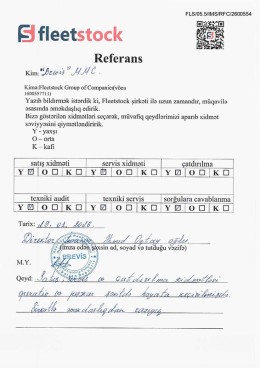 FLS/05.5/IMS/RFC/2600554
fleetstock
Referans
Kim: "Brevis" MMC
Kimə:Fleetstock Group of Companies(vöen
1600557711)
Yazıb bildirmək istərdik ki, Fleetstock şirkəti ilə uzun zamandır, müqavilə
əsasında əməkdaşlıq edirik.
Bizə göstərilən xidmətləri seçərək, müvafiq qeydlərimizi aparıb xidmət
səviyyəsini qiymətləndiririk.
Y - yaxşı
O – orta
K – kafi
satış xidməti servis xidməti çatdırılma
Y ☑ O ☐ K ☐ Y ☑ O ☐ K ☐ Y ☑ O ☐ K ☐
texniki audit texniki servis sorğulara cavablanma
Y ☐ O ☐ K ☐ Y ☐ O ☐ K ☐ Y ☑ O ☐ K ☐
Tarix:
Direktor oğlu
(imza edən şəxsin ad, soyad və tutduğu vəzifə)
BREVIS
M.Y.
Qeyd: Satış, və çatdırılma xidmətləri
operativ və şəkildə həyata keçirilmişdir.
razıyıq